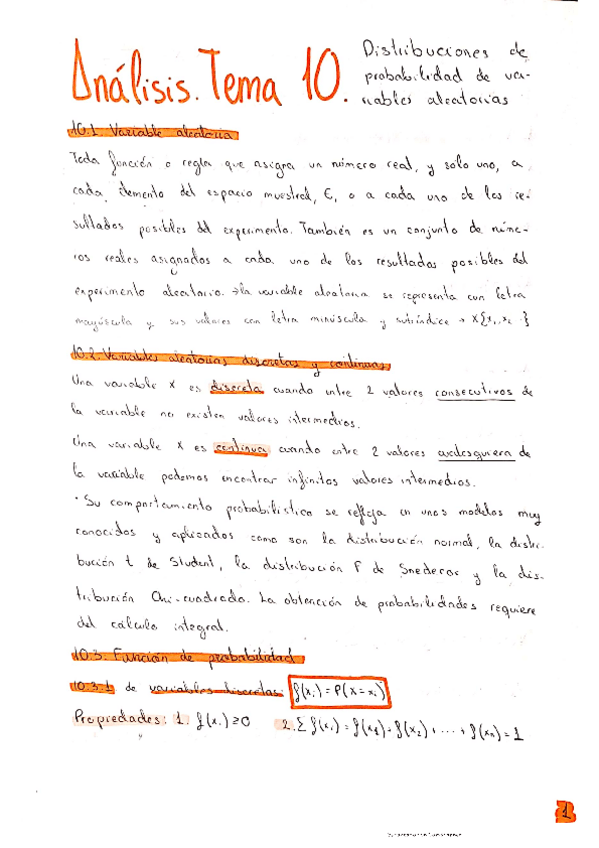 Análisis. Tema 10.
Distribuciones de
probabilidad de va-
riables aleatorias
10.1. Variable aleatoria
Toda función o regla que asigna un número real, y solo uno, a
cada elemento del espacio muestral, E, o a cada uno de los re-
sultados posibles del experimento. También es un conjunto de núme-
ros reales asignados a cada uno de los resultados posibles del
experimento aleatorio. → la variable aleatoria se representa con letra
mayúscula y sus valores con letra minúscula y subíndice → X{x₁, x₂ }
10.2. Variables aleatorias discretas y continuas
Una variable X es discreta cuando entre 2 valores consecutivos de
la variable no existen valores intermedios.
Una variable X es continua cuando entre 2 valores cualesquiera de
la variable podemos encontrar infinitos valores intermedios.
· Su comportamiento probabilístico se refleja en unos modelos muy
conocidos y aplicados como son la distribución normal, la distri-
bución t de Student, la distribución F de Snedecor y la dis-
tribución Chi-cuadrado. La obtención de probabilidades requiere
del cálculo integral.
10.3. Función de probabilidad
10.3.1 de variables discretas f(xᵢ) = P(X = xᵢ)
Propiedades: 1. f(xᵢ) ≥ 0 2. Σ f(xᵢ) = f(x₁) + f(x₂) + ... + f(xₙ) = 1
1